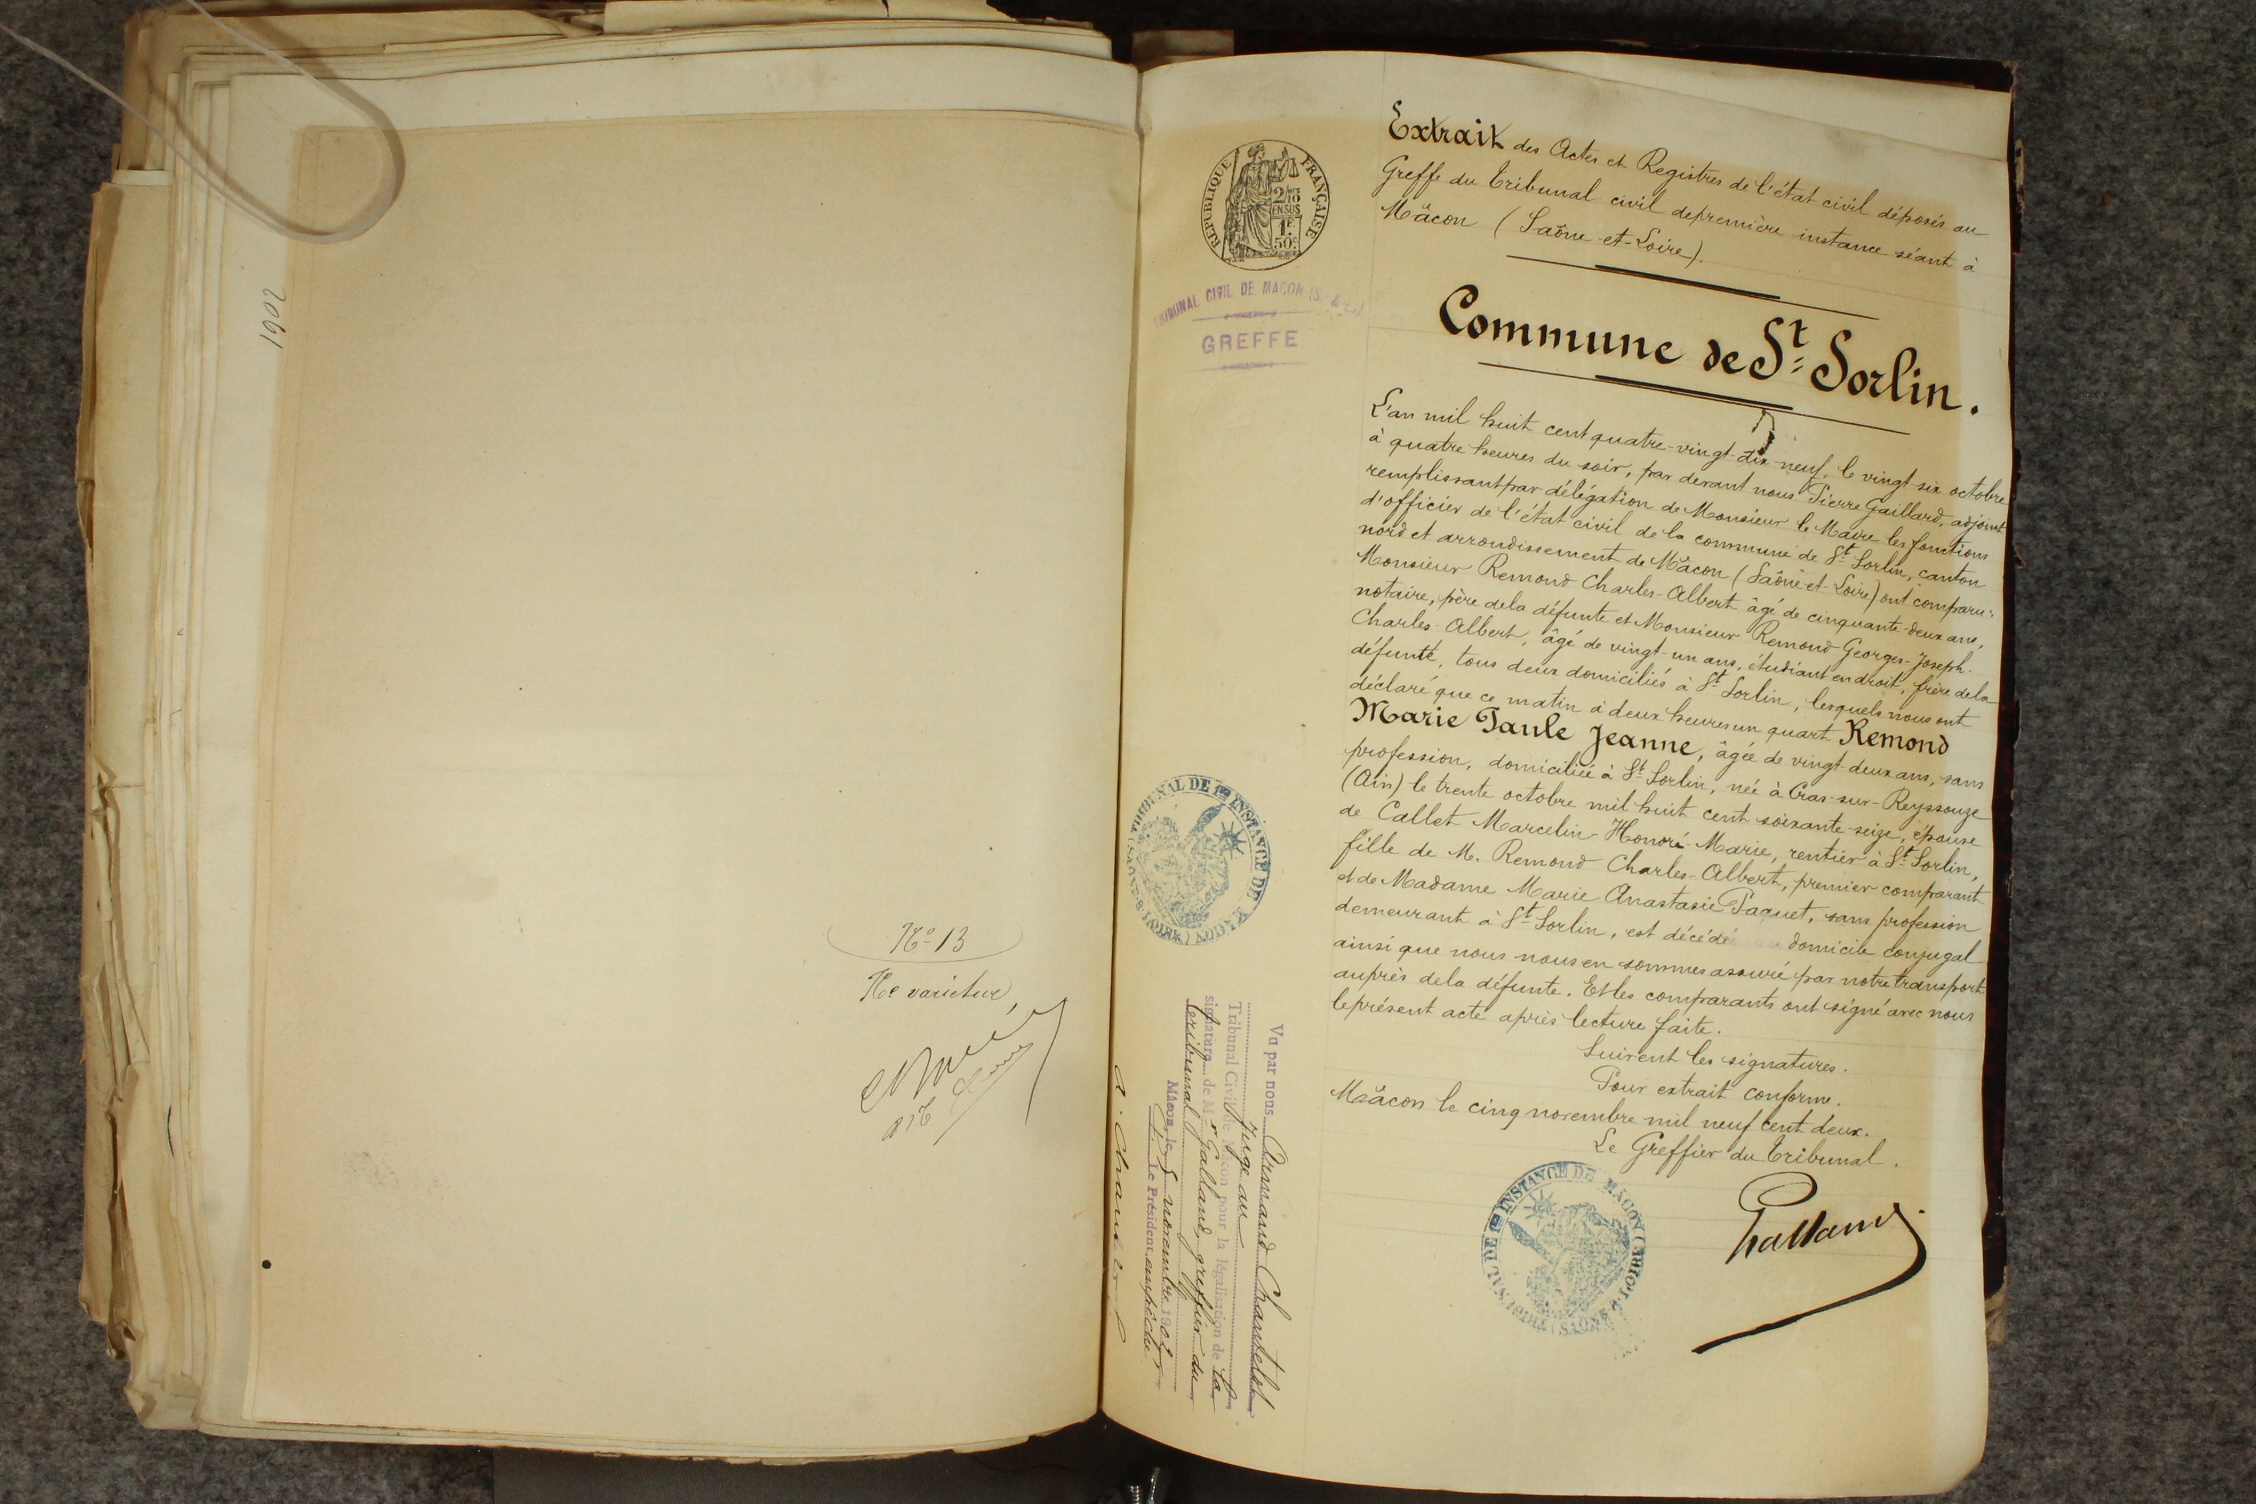 1902
Nº 13
Ne varietur,
REPUBLIQUE FRANÇAISE
2/10 EN SUS
1F 50c
TRIBUNAL CIVIL DE MACON (S.-&-L.)
GREFFE
TRIBUNAL DE 1re INSTANCE DE MACON (SAONE-&-LOIRE)
Vu par nous Armand Chantelot
Juge au
Tribunal Civil de Macon pour la légalisation de la
signature de Mr Galland, greffier du
tribunal
Mâcon, le 5 novembre 1902
Le Président, empêché
Extrait des Actes et Registres de l'état civil déposés au
Greffe du Tribunal civil de première instance séant à
Mâcon (Saône-et-Loire).
Commune de St Sorlin.
L'an mil huit cent quatre-vingt-dix-neuf, le vingt-six octobre
à quatre heures du soir, par devant nous Pierre Gaillard, adjoint
remplissant par délégation de Monsieur le Maire les fonctions
d'officier de l'état civil de la commune de St Sorlin, canton
nord et arrondissement de Mâcon (Saône-et-Loire) ont comparu:
Monsieur Remond Charles-Albert âgé de cinquante-deux ans,
notaire, père de la défunte et Monsieur Remond Georges-Joseph-
Charles-Albert, âgé de vingt-un ans, étudiant en droit, frère de la
défunte, tous deux domiciliés à St Sorlin, lesquels nous ont
déclaré que ce matin à deux heures un quart Remond
Marie Paule Jeanne, âgée de vingt-deux ans, sans
profession, domiciliée à St Sorlin, née à Cras-sur-Reyssouze
(Ain) le trente octobre mil huit cent soixante-seize, épouse
de Callet Marcelin-Honoré-Marie, rentier à St Sorlin,
fille de M. Remond Charles-Albert, premier comparant
et de Madame Marie Anastasie Paquet, sans profession
demeurant à St Sorlin, est décédé domicile conjugal
ainsi que nous nous en sommes assuré par notre transport
auprès de la défunte. Et les comparants ont signé avec nous
le présent acte après lecture faite.
Suivent les signatures.
Pour extrait conforme.
Mâcon le cinq novembre mil neuf cent deux.
Le Greffier du Tribunal.
Galland
TRIBUNAL DE 1re INSTANCE DE MACON (SAONE-&-LOIRE)